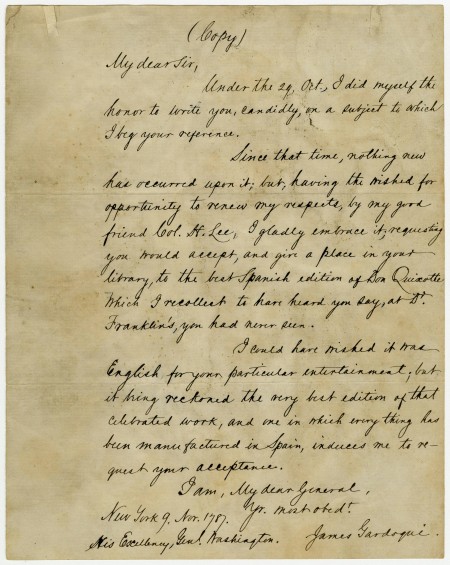 (Copy)
My dear Sir,
Under the 29, Oct., I did myself the
honor to write you, candidly, on a subject to which
I beg your reference.
Since that time, nothing new
has occurred upon it; but, having the wished for
opportunity to renew my respects, by my good
friend Col. H. Lee, I gladly embrace it, requesting
you would accept, and give a place in your
library, to the best Spanish edition of Don Quixotte
Which I recollect to have heard you say, at Dr.
Franklin's, you had never seen.
I could have wished it was
English for your particular entertainment; but
it being reckoned the very best edition of that
celebrated work, and one in which every thing has
been manufactured in Spain, induces me to re-
quest your acceptance.
I am, My dear General,
Yr. most obedt.
New York 9, Nov. 1787.
His Excellency, Genl. Washington.
James Gardoqui.